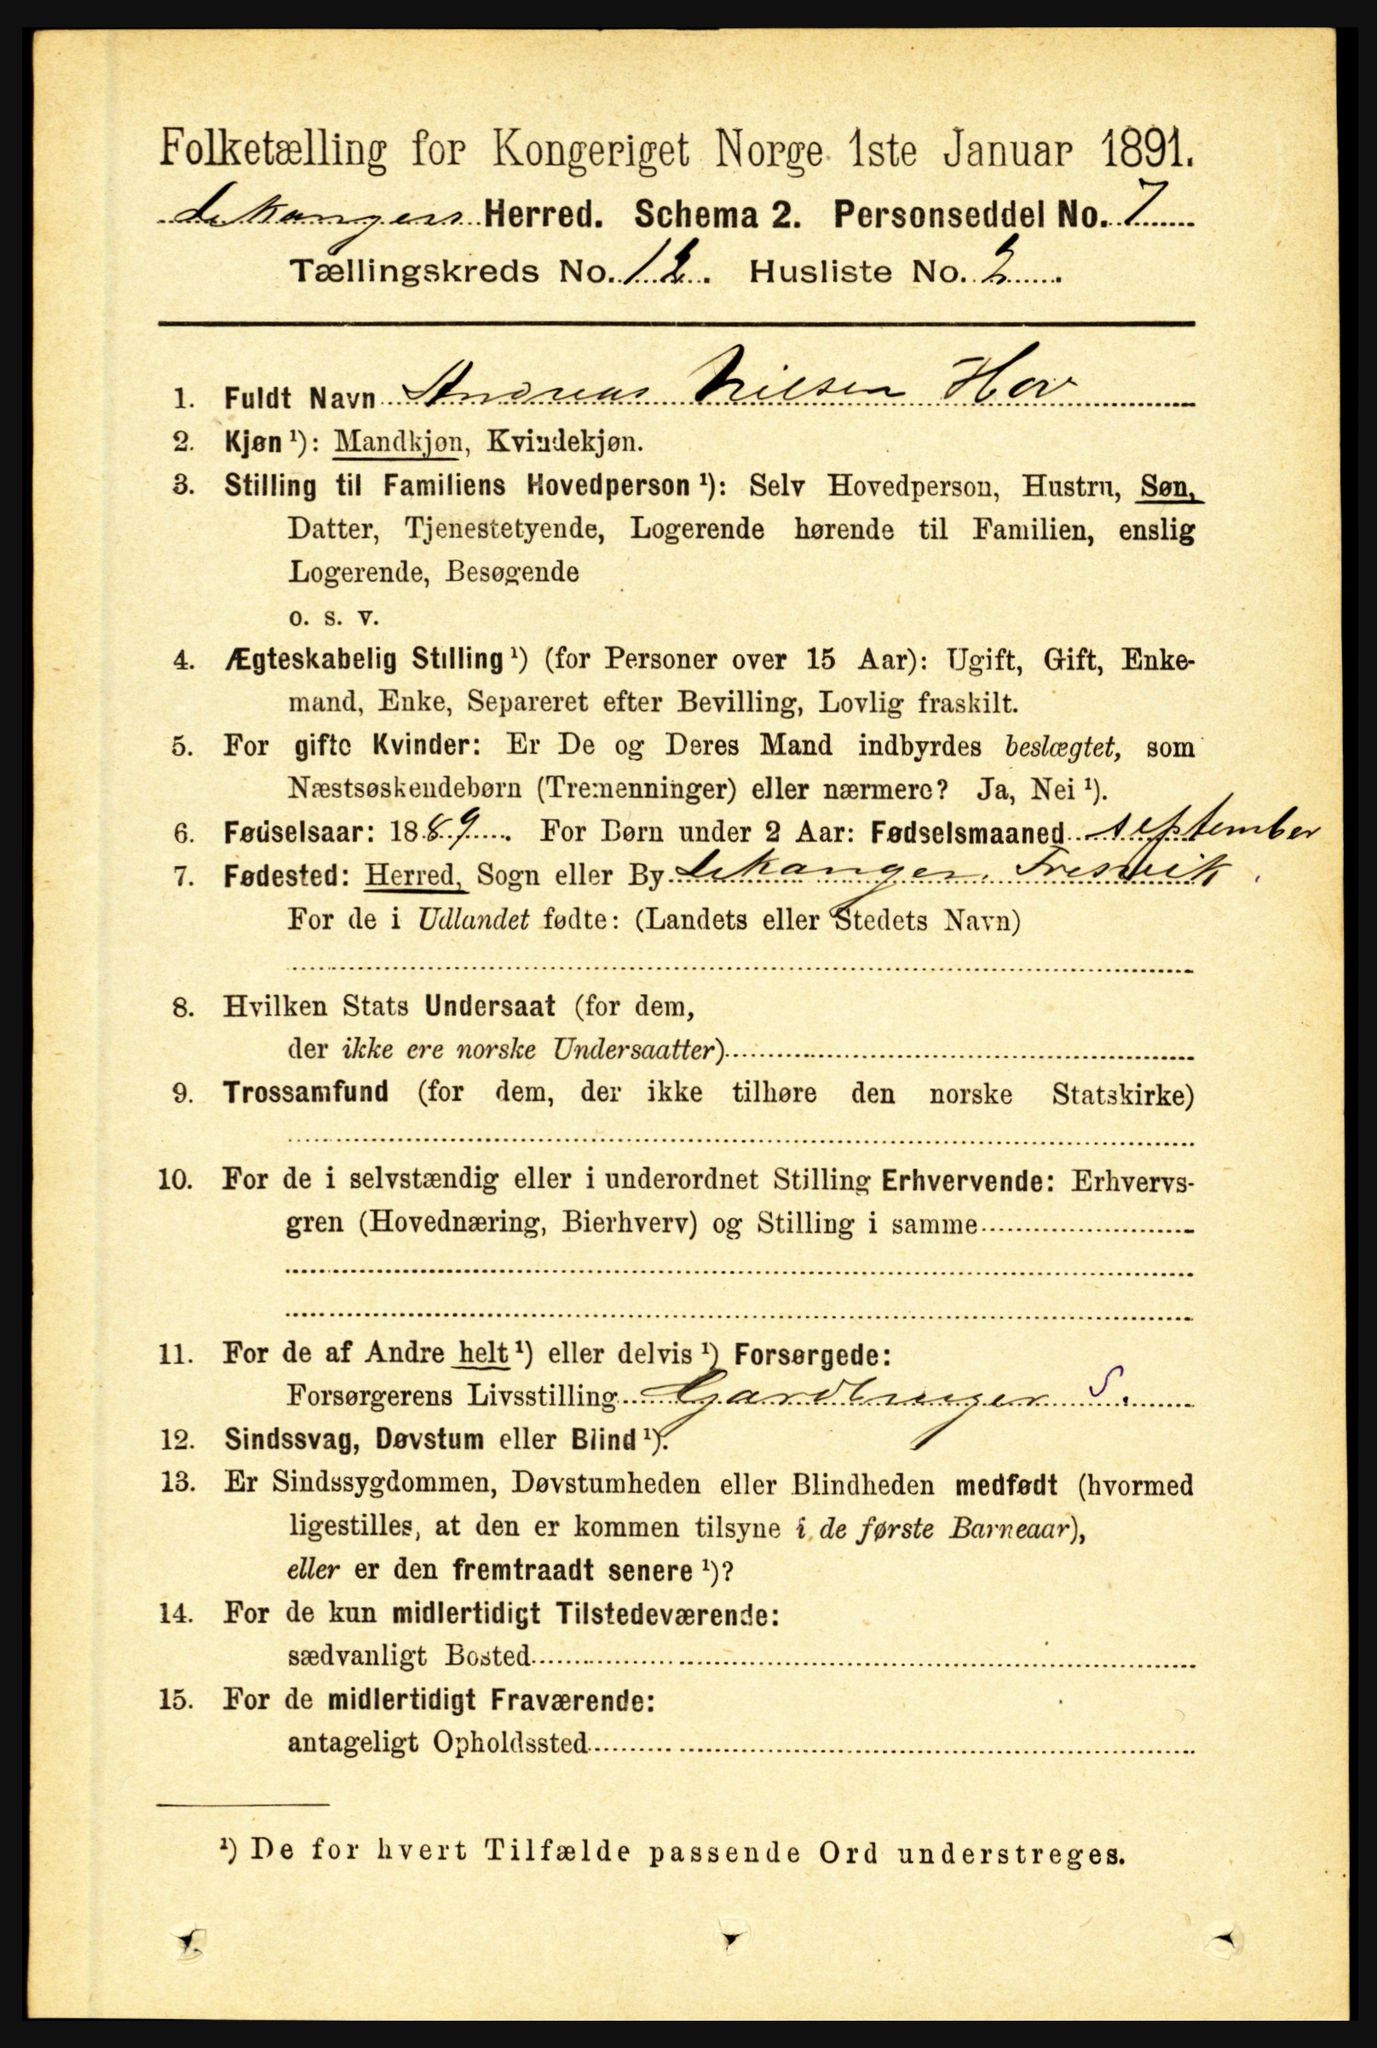 Folketælling for Kongeriget Norge 1ste Januar 1891.
Lekangers Herred. Schema 2. Personseddel No. 7
Tællingskreds No. 12. Husliste No. 2.
1. Fuldt Navn Andreas Nilsen Hov
2. Kjøn ¹): Mandkjøn, Kvindekjøn.
3. Stilling til Familiens Hovedperson ¹): Selv Hovedperson, Hustru, Søn,
Datter, Tjenestetyende, Logerende hørende til Familien, enslig
Logerende, Besøgende
o. s. v.
4. Ægteskabelig Stilling ¹) (for Personer over 15 Aar): Ugift, Gift, Enke-
mand, Enke, Separeret efter Bevilling, Lovlig fraskilt.
5. For gifte Kvinder: Er De og Deres Mand indbyrdes beslægtet, som
Næstsøskendebørn (Tremenninger) eller nærmere? Ja, Nei ¹).
6. Fødselsaar: 1889. For Børn under 2 Aar: Fødselsmaaned september
7. Fødested: Herred, Sogn eller By Lekanger, Fresvik
For de i Udlandet fødte: (Landets eller Stedets Navn)
8. Hvilken Stats Undersaat (for dem,
der ikke ere norske Undersaatter)
9. Trossamfund (for dem, der ikke tilhøre den norske Statskirke)
10. For de i selvstændig eller i underordnet Stilling Erhvervende: Erhvervs-
gren (Hovednæring, Bierhverv) og Stilling i samme
11. For de af Andre helt ¹) eller delvis ¹) Forsørgede:
Forsørgerens Livsstilling Gardbruger S.
12. Sindssvag, Døvstum eller Blind ¹).
13. Er Sindssygdommen, Døvstumheden eller Blindheden medfødt (hvormed
ligestilles, at den er kommen tilsyne i de første Barneaar),
eller er den fremtraadt senere ¹)?
14. For de kun midlertidigt Tilstedeværende:
sædvanligt Bosted
15. For de midlertidigt Fraværende:
antageligt Opholdssted
¹) De for hvert Tilfælde passende Ord understreges.